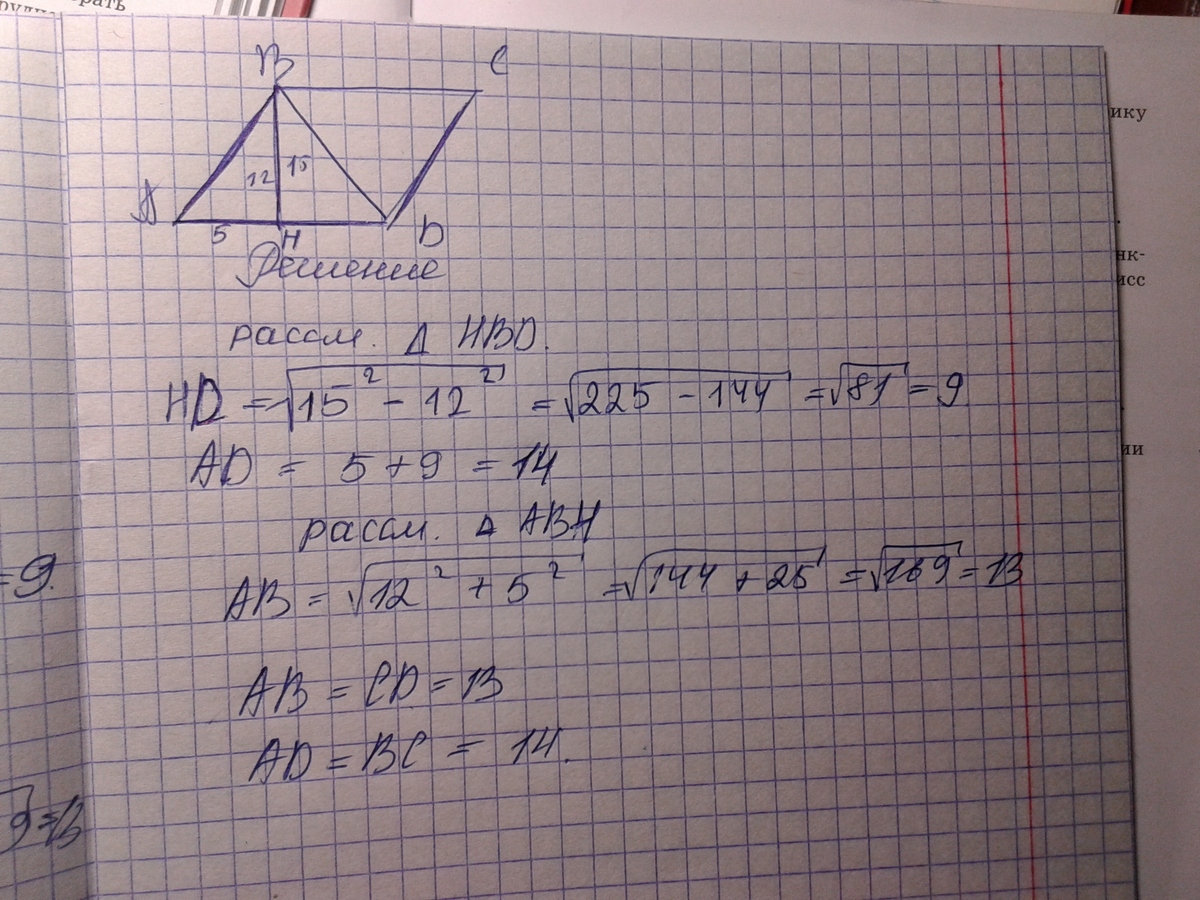 брать
B
C
12
15
A
5
H
D
Решение
рассм. Δ HBD.
HD = √15² - 12² = √225 - 144 = √81 = 9
AD = 5 + 9 = 14
рассм. Δ ABH
AB = √12² + 5² = √144 + 25 = √169 = 13
AB = CD = 13
AD = BC = 14.
= 9.
9 = 13
ику
нк-
исс
ии